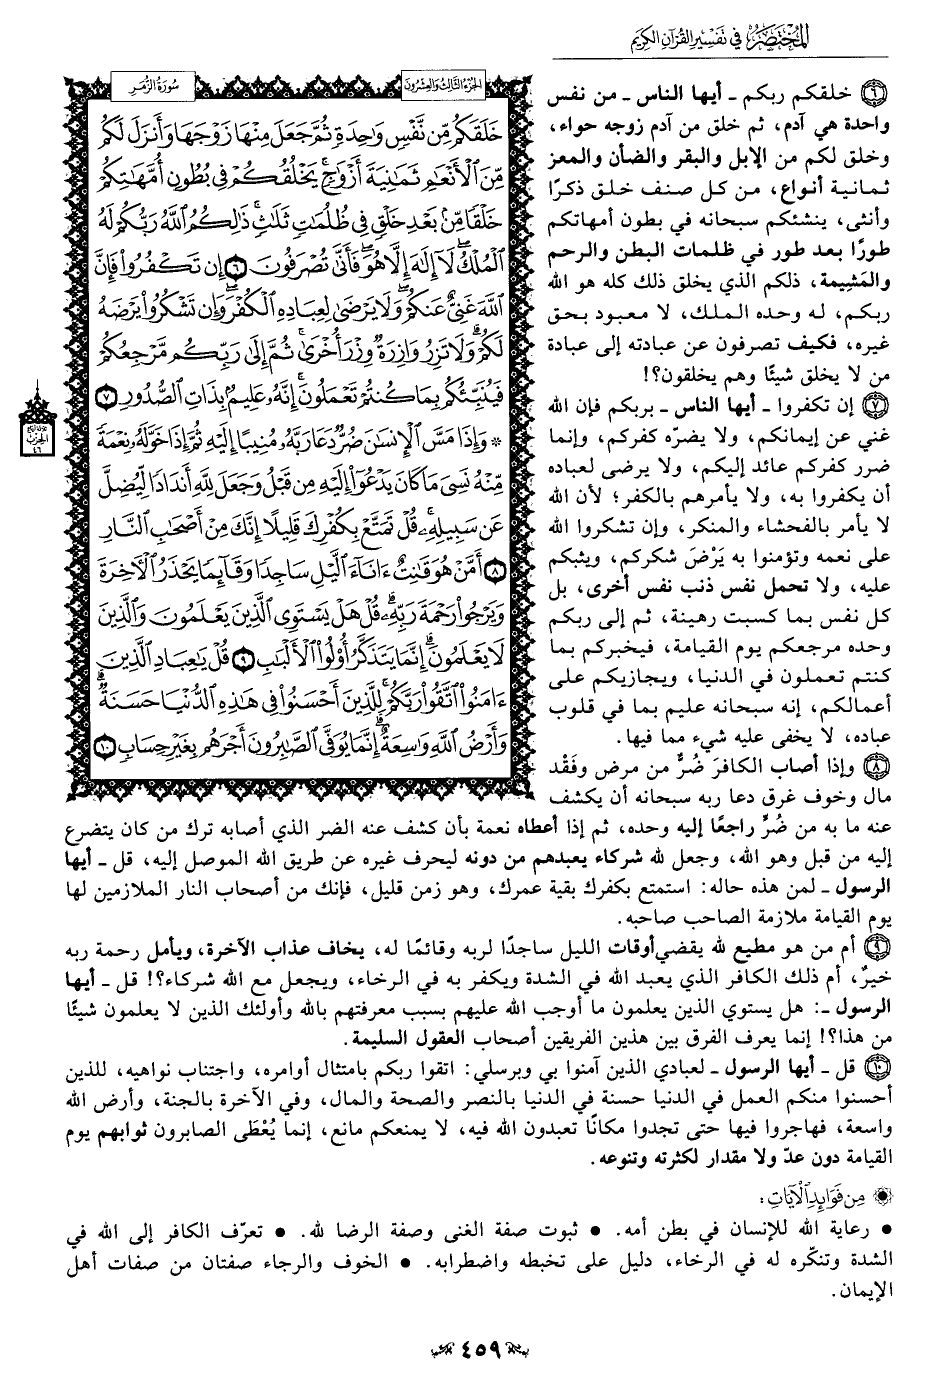 المختصر في تفسير القرآن الكريم
الجزء الثالث والعشرون
سورة الزمر
خَلَقَكُم مِّن نَّفْسٍ وَٰحِدَةٍ ثُمَّ جَعَلَ مِنْهَا زَوْجَهَا وَأَنزَلَ لَكُم
مِّنَ ٱلْأَنْعَٰمِ ثَمَٰنِيَةَ أَزْوَٰجٍ ۚ يَخْلُقُكُمْ فِى بُطُونِ أُمَّهَٰتِكُمْ
خَلْقًا مِّنۢ بَعْدِ خَلْقٍ فِى ظُلُمَٰتٍ ثَلَٰثٍ ۚ ذَٰلِكُمُ ٱللَّهُ رَبُّكُمْ لَهُ
ٱلْمُلْكُ ۖ لَآ إِلَٰهَ إِلَّا هُوَ ۖ فَأَنَّىٰ تُصْرَفُونَ ٦ إِن تَكْفُرُوا۟ فَإِنَّ
ٱللَّهَ غَنِىٌّ عَنكُمْ ۖ وَلَا يَرْضَىٰ لِعِبَادِهِ ٱلْكُفْرَ ۖ وَإِن تَشْكُرُوا۟ يَرْضَهُ
لَكُمْ ۗ وَلَا تَزِرُ وَازِرَةٌ وِزْرَ أُخْرَىٰ ۗ ثُمَّ إِلَىٰ رَبِّكُم مَّرْجِعُكُمْ
فَيُنَبِّئُكُم بِمَا كُنتُمْ تَعْمَلُونَ ۚ إِنَّهُۥ عَلِيمٌۢ بِذَاتِ ٱلصُّدُورِ ٧
* وَإِذَا مَسَّ ٱلْإِنسَٰنَ ضُرٌّ دَعَا رَبَّهُۥ مُنِيبًا إِلَيْهِ ثُمَّ إِذَا خَوَّلَهُۥ نِعْمَةً
مِّنْهُ نَسِىَ مَا كَانَ يَدْعُوٓا۟ إِلَيْهِ مِن قَبْلُ وَجَعَلَ لِلَّهِ أَندَادًا لِّيُضِلَّ
عَن سَبِيلِهِۦ ۚ قُلْ تَمَتَّعْ بِكُفْرِكَ قَلِيلًا ۖ إِنَّكَ مِنْ أَصْحَٰبِ ٱلنَّارِ
٨ أَمَّنْ هُوَ قَٰنِتٌ ءَانَآءَ ٱلَّيْلِ سَاجِدًا وَقَآئِمًا يَحْذَرُ ٱلْأٓخِرَةَ
وَيَرْجُوا۟ رَحْمَةَ رَبِّهِۦ ۗ قُلْ هَلْ يَسْتَوِى ٱلَّذِينَ يَعْلَمُونَ وَٱلَّذِينَ
لَا يَعْلَمُونَ ۗ إِنَّمَا يَتَذَكَّرُ أُو۟لُوا۟ ٱلْأَلْبَٰبِ ٩ قُلْ يَٰعِبَادِ ٱلَّذِينَ
ءَامَنُوا۟ ٱتَّقُوا۟ رَبَّكُمْ ۚ لِلَّذِينَ أَحْسَنُوا۟ فِى هَٰذِهِ ٱلدُّنْيَا حَسَنَةٌ ۗ
وَأَرْضُ ٱللَّهِ وَٰسِعَةٌ ۗ إِنَّمَا يُوَفَّى ٱلصَّٰبِرُونَ أَجْرَهُم بِغَيْرِ حِسَابٍ ١٠
الحزب
٤٦
٦ خلقكم ربكم ـ أيها الناس ـ من نفس
واحدة هي آدم، ثم خلق من آدم زوجه حواء،
وخلق لكم من الإبل والبقر والضأن والمعز
ثمانية أنواع، من كل صنف خلق ذكرًا
وأنثى، ينشئكم سبحانه في بطون أمهاتكم
طورًا بعد طور في ظلمات البطن والرحم
والمَشِيمة، ذلكم الذي يخلق ذلك كله هو الله
ربكم، له وحده الملك، لا معبود بحق
غيره، فكيف تصرفون عن عبادته إلى عبادة
من لا يخلق شيئًا وهم يخلقون؟!
٧ إن تكفروا ـ أيها الناس ـ بربكم فإن الله
غني عن إيمانكم، ولا يضرّه كفركم، وإنما
ضرر كفركم عائد إليكم، ولا يرضى لعباده
أن يكفروا به، ولا يأمرهم بالكفر؛ لأن الله
لا يأمر بالفحشاء والمنكر، وإن تشكروا الله
على نعمه وتؤمنوا به يَرْضَ شكركم، ويثبكم
عليه، ولا تحمل نفس ذنب نفس أخرى، بل
كل نفس بما كسبت رهينة، ثم إلى ربكم
وحده مرجعكم يوم القيامة، فيخبركم بما
كنتم تعملون في الدنيا، ويجازيكم على
أعمالكم، إنه سبحانه عليم بما في قلوب
عباده، لا يخفى عليه شيء مما فيها.
٨ وإذا أصاب الكافرَ ضُرٌّ من مرض وفَقْد
مال وخوف غرق دعا ربه سبحانه أن يكشف
عنه ما به من ضُرٍّ راجعًا إليه وحده، ثم إذا أعطاه نعمة بأن كشف عنه الضر الذي أصابه ترك من كان يتضرع
إليه من قبل وهو الله، وجعل لله شركاء يعبدهم من دونه ليحرف غيره عن طريق الله الموصل إليه، قل ـ أيها
الرسول ـ لمن هذه حاله: استمتع بكفرك بقية عمرك، وهو زمن قليل، فإنك من أصحاب النار الملازمين لها
يوم القيامة ملازمة الصاحب صاحبه.
٩ أم من هو مطيع لله يقضي أوقات الليل ساجدًا لربه وقائمًا له، يخاف عذاب الآخرة، ويأمل رحمة ربه
خيرٌ، أم ذلك الكافر الذي يعبد الله في الشدة ويكفر به في الرخاء، ويجعل مع الله شركاء؟! قل ـ أيها
الرسول ـ: هل يستوي الذين يعلمون ما أوجب الله عليهم بسبب معرفتهم بالله وأولئك الذين لا يعلمون شيئًا
من هذا؟! إنما يعرف الفرق بين هذين الفريقين أصحاب العقول السليمة.
١٠ قل ـ أيها الرسول ـ لعبادي الذين آمنوا بي وبرسلي: اتقوا ربكم بامتثال أوامره، واجتناب نواهيه، للذين
أحسنوا منكم العمل في الدنيا حسنة في الدنيا بالنصر والصحة والمال، وفي الآخرة بالجنة، وأرض الله
واسعة، فهاجروا فيها حتى تجدوا مكانًا تعبدون الله فيه، لا يمنعكم مانع، إنما يُعْطَى الصابرون ثوابهم يوم
القيامة دون عدّ ولا مقدار لكثرته وتنوعه.
من فوائد الآيات:
• رعاية الله للإنسان في بطن أمه. • ثبوت صفة الغنى وصفة الرضا لله. • تعرّف الكافر إلى الله في
الشدة وتنكّره له في الرخاء، دليل على تخبطه واضطرابه. • الخوف والرجاء صفتان من صفات أهل
الإيمان.
٤٥٩